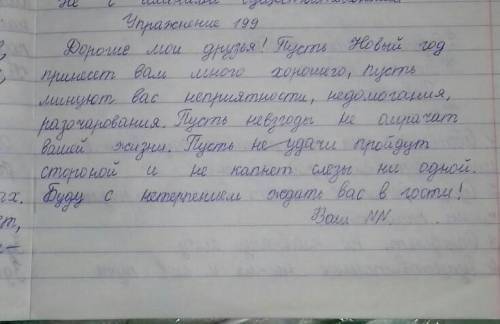 Не с
Упражнение 199
Дорогие мои друзья! Пусть Новый год
принесет вам много хорошего, пусть
минуют вас неприятности, недомогания,
разочарования. Пусть невзгоды не омрачат
вашей жизни. Пусть не удачи пройдут
стороной и не капнет слезы ни одной.
ах. Буду с нетерпением ждать вас в гости!
ет, Ваш NN.